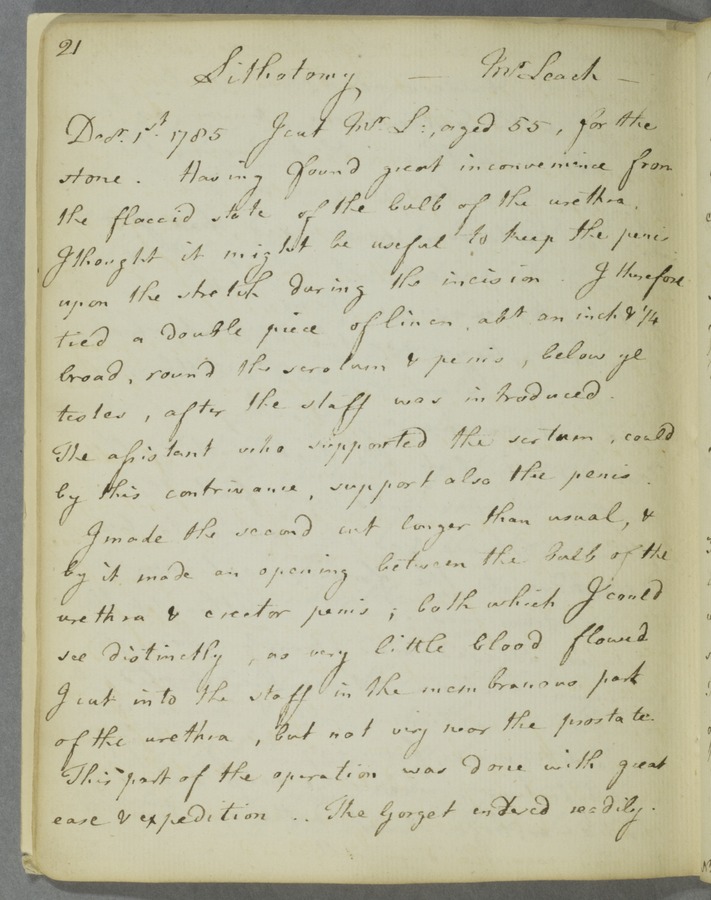 21
Lithotomy — Mr. Leach —
Decr. 1st. 1785 I cut Mr. L:, aged 55, for the
stone. Having found great inconvenience from
the flaccid state of the bulb of the urethra,
I thought it might be useful to keep the penis
upon the stretch during the incision. I therefore
tied a double piece of linen, abt an inch & 1/4
broad, round the scrotum & penis, below ye
testes, after the staff was introduced.
The assistant who supported the scrtum, could
by this contrivance, support also the penis.
I made the second cut longer than usual, &
by it made an opening between the bulb of the
urethra & erector penis; both which I could
see distinctly, as very little blood flowed
I cut into the staff in the membranous part
of the urethra, but not very near the prostate.
This part of the operation was done with great
ease & expedition .. The Gorget entered readily.